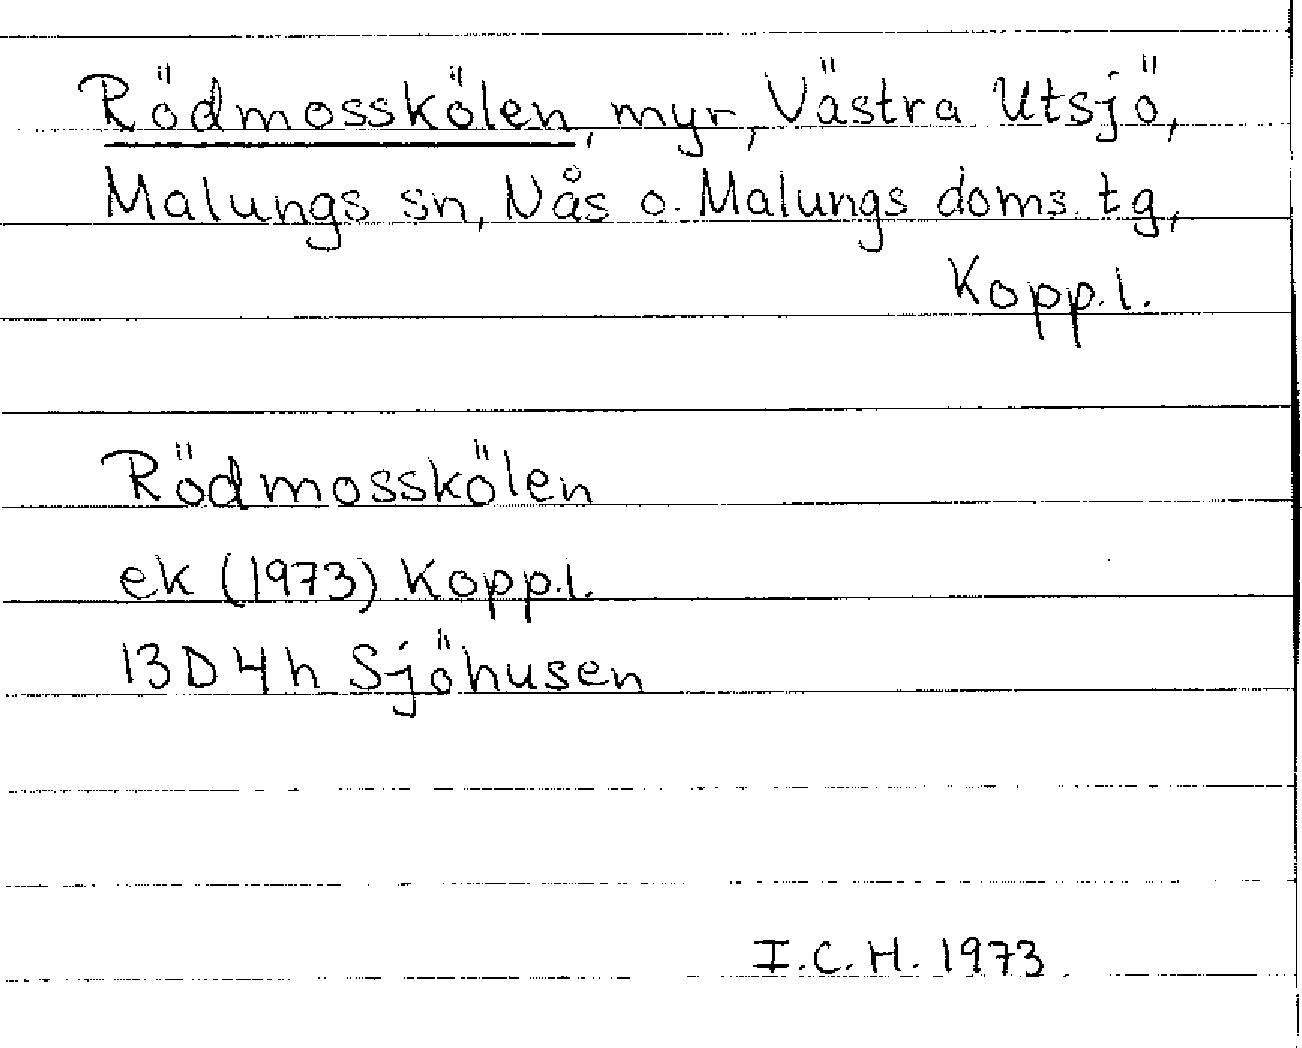 Rödmosskölen, myr, Västra Utsjö,
Malungs sn, Nås o. Malungs doms. tg,
Kopp.l.
Rödmosskölen
ek (1973) Kopp.l.
13D4h Sjöhusen
I.C.H. 1973